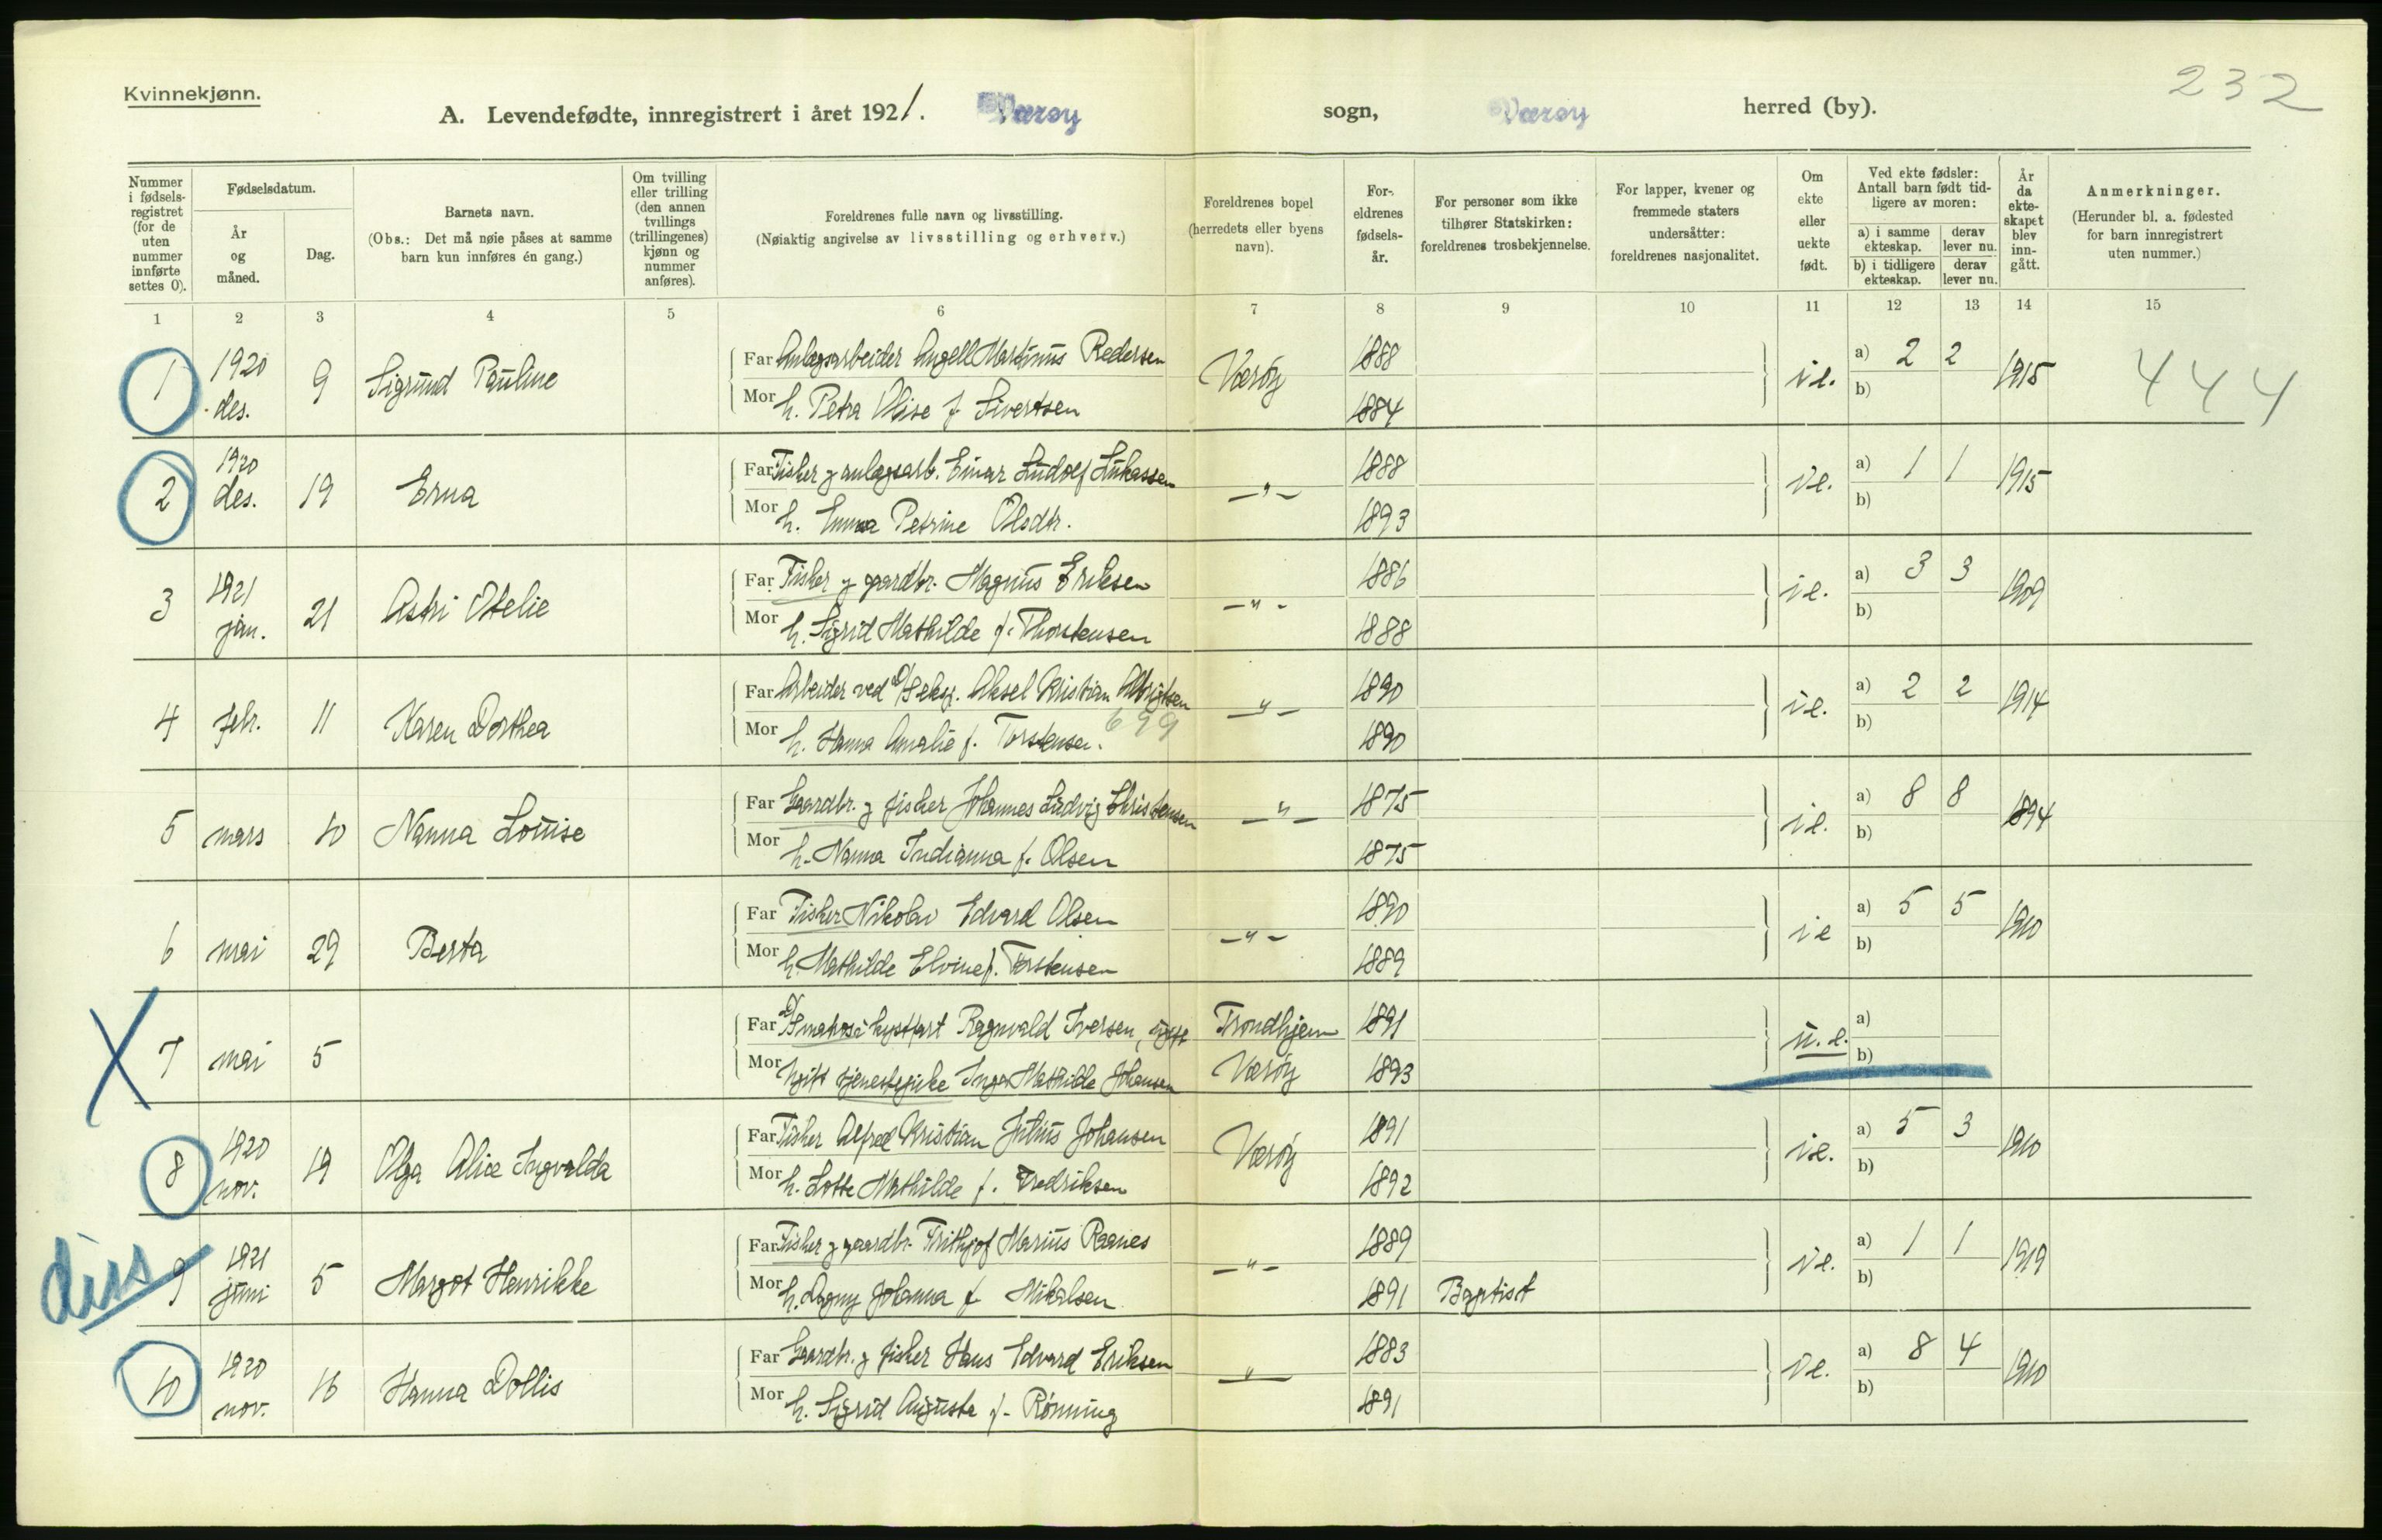 Kvinnekjønn.
232
A. Levendefødte, innregistrert i året 1921. Værøy sogn, Værøy herred (by).
Nummer i fødsels-registret (for de uten nummer innførte settes 0).
Fødselsdatum.
År og måned.
Dag.
Barnets navn.
(Obs.: Det må nøie påses at samme barn kun innføres én gang.)
Om tvilling eller trilling (den annen tvillings (trillingenes) kjønn og nummer anføres).
Foreldrenes fulle navn og livsstilling.
(Nøiaktig angivelse av livsstilling og erhverv.)
Foreldrenes bopel (herredets eller byens navn).
For-eldrenes fødsels-år.
For personer som ikke tilhører Statskirken: foreldrenes trosbekjennelse.
For lapper, kvener og fremmede staters undersåtter: foreldrenes nasjonalitet.
Om ekte eller uekte født.
Ved ekte fødsler: Antall barn født tid-ligere av moren:
a) i samme ekteskap.
derav lever nu.
b) i tidligere ekteskap.
derav lever nu.
År da ekte-skapet blev inn-gått.
Anmerkninger.
(Herunder bl. a. fødested for barn innregistrert uten nummer.)
1 2 3 4 5 6 7 8 9 10 11 12 13 14 15
1 1920 des. 9 Sigrund Pauline Far Anlægsarbeider Angell Martinus Pedersen Værøy 1888 i e. a) 2 2 1915 444
Mor h. Petra Olise f. Sivertsen 1884 b)
2 1920 des. 19 Erna Far Fisker og anlægsarb. Einar Ludolf Lukassen —"— 1888 i e. a) 1 1 1915
Mor h. Emma Petrine Olsdtr. 1893 b)
3 1921 jan. 21 Astri Otelie Far Fisker og gaardbr. Magnus Eriksen —"— 1886 i e. a) 3 3 1909
Mor h. Sigrid Mathilde f. Thorstensen 1888 b)
4 febr. 11 Karen Dorthea Far Arbeider ved Aksel Kristian Albrigtsen —"— 1890 i e. a) 2 2 1914
Mor h. Hanna Amalie f. Torstensen. 699 1890 b)
5 mars 10 Nanna Louise Far Gaardbr. og fisker Johannes Ludvig Christensen —"— 1875 i e. a) 8 8 1894
Mor h. Nanna Indianna f. Olsen 1875 b)
6 mai 29 Berta Far Fisker Nikolai Edvard Olsen —"— 1890 i e a) 5 5 1910
Mor h. Mathilde Elvine f. Torstensen 1889 b)
X 7 mai 5 Far matros i kystfart Ragnvald Iversen, ugift Trondhjem 1891 u. e. a)
Mor Ugift tjenestepike Inga Mathilde Johansen Værøy 1893 b)
8 1920 nov. 19 Olga Alice Ingvalda Far Fisker Alfred Kristian Julius Johansen Værøy 1891 i e. a) 5 3 1910
Mor h. Lotte Mathilde f. Fredriksen 1892 b)
diss 9 1921 juni 5 Margot Henrikke Far Fisker og gaardbr. Frithjof Marius Raanes —"— 1889 i e. a) 1 1 1919
Mor h. Dagny Johanna f. Mikalsen 1891 Baptist b)
10 1920 nov. 16 Hanna Dollis Far Gaardbr. og fisker Hans Edvard Eriksen —"— 1883 i e. a) 8 4 1910
Mor h. Sigrid Auguste f. Rønning 1891 b)